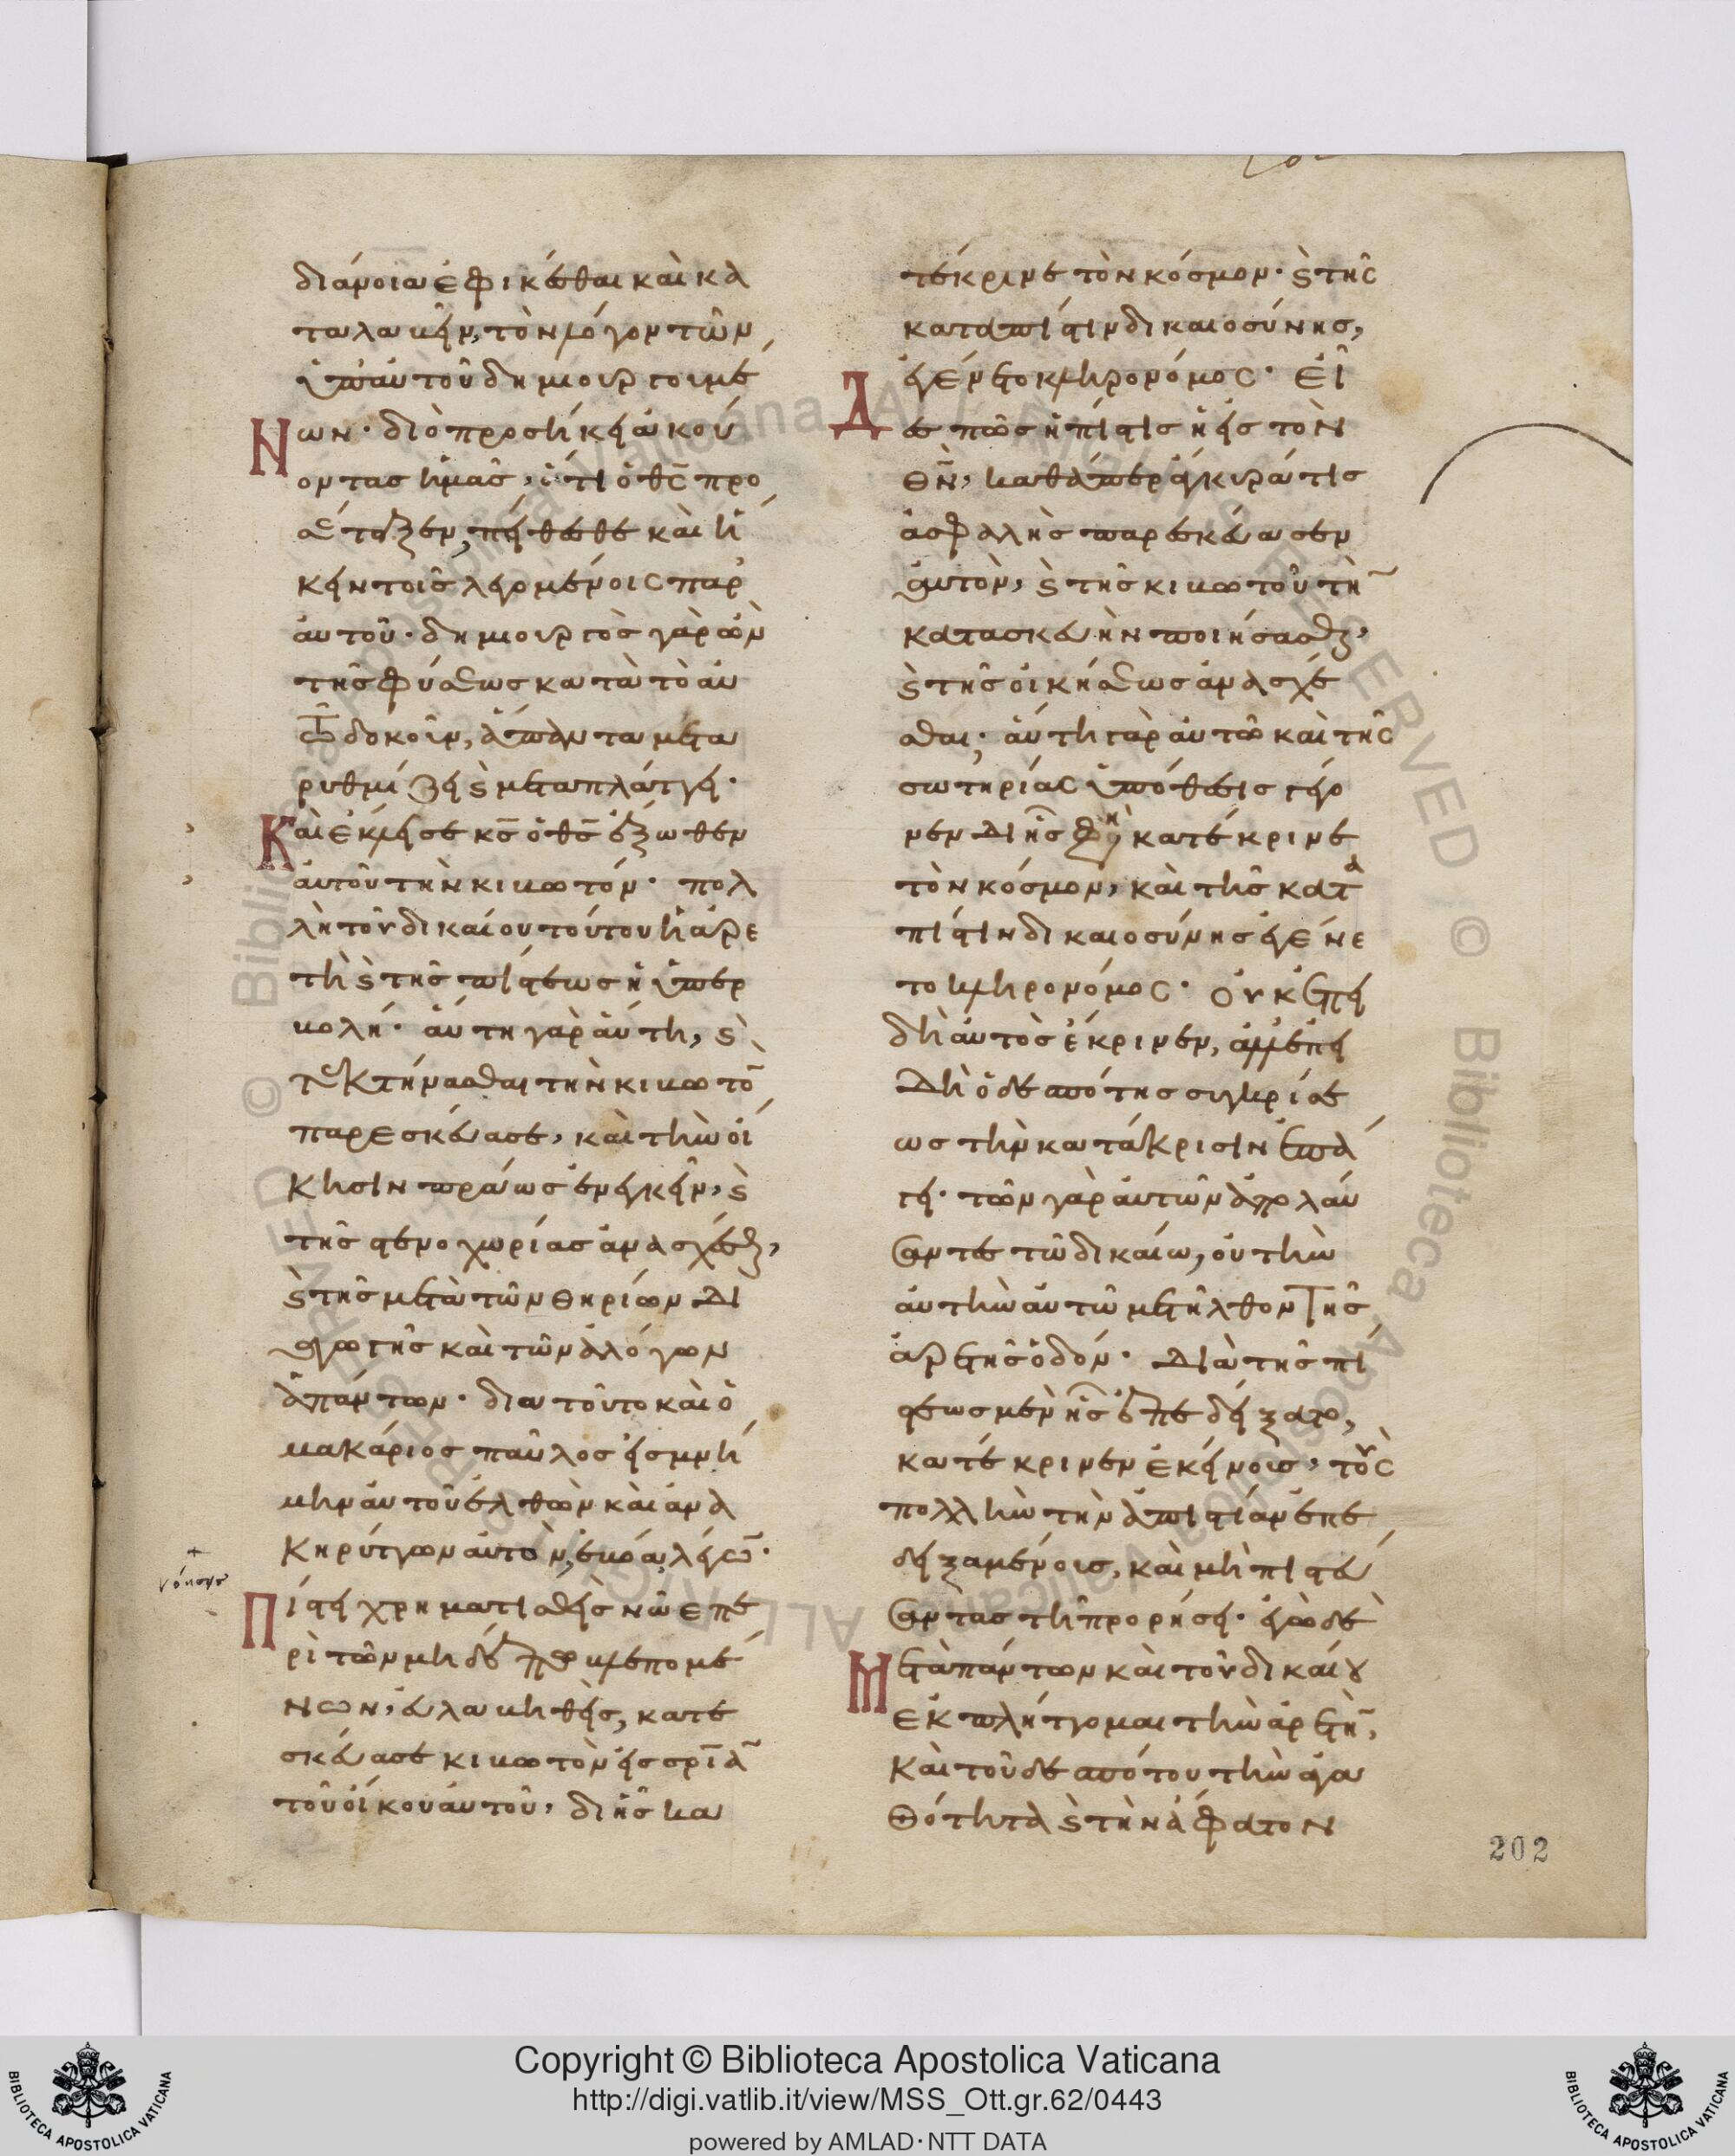 διάνοιαν ἐφικέσθαι καὶ κα
ταλαβεῖν, τὸν λόγον τῶν
ὑπ' αὐτοῦ δημιουργουμέ
Νων· διὸ προσήκει ἀκού
οντας ἡμᾶς, ὅτι ὁ θς̅ προ
σέταξεν, πείθεσθε καὶ εἴ
κειν τοῖς λεγομένοις παρ'
αὐτοῦ· δημιουργὸς γὰρ ὢν
τῆς φύσεως κατὰ τὸ αὐ
τῶ δοκοῦν, ἅπαντα μετα
ρυθμίζει ϗ μεταπλάττει·
Καὶ ἔκλεισε κς̅ ὁ θς̅ ἔξωθεν
αὐτοῦ τὴν κιβωτόν· πολ
λὴ τοῦ δικαίου τούτου ἡ ἀρε
τὴ ϗ τῆς πίστεως ἡ ὑπερ
βολή· αὕτη γὰρ αὕτη, ϗ
τεκτήνασθαι τὴν κιβωτὸ̅
παρεσκεύασε, καὶ τὴν οἴ
κησιν πράως ἐνεγκεῖν, ϗ
τῆς στενοχωρίας ἀνασχέσθαι,
ϗ τῆς μετὰ τῶν θηρίων δι
αγωγῆς καὶ τῶν ἀλόγων
ἁπάντων· διὰ τοῦτο καὶ ὁ
μακάριος παῦλος εἰς μνή
μην αὐτοῦ ἐλθὼν καὶ ἀνα
κηρύττων αὐτὸν, ἐβόα, λέγω̅·
Πίστει χρηματισθεὶς νῶε πε
ρὶ τῶν μηδέπω βλεπομέ
νων, εὐλαβηθεὶς, κατε
σκεύασε κιβωτὸν εἰς σρι̅α̅
τοῦ οἴκου αὐτοῦ, δι' ἧς κα
τέκρινε τὸν κόσμον· ϗ τῆς
κατὰ πίστιν δικαιοσύνης,
ἐγένετο κληρονόμος· Εἶ
Δες πῶς ἡ πίστις ἡ εἰς τὸν
θν̅, καθάπερ ἄγκυρά τις
ἀσφαλὴς παρεσκεύασεν
αὐτὸν, ϗ τῆς κιβωτοῦ τὴ̅
κατασκευὴν ποιήσασθαι,
ϗ τῆς οἰκήσεως ἀνασχέ
σθαι; αὕτη γὰρ αὐτῶ καὶ τῆς
σωτηρίας ὑπόθεσις γέγο
νεν δι' ἧς φησὶ κατέκρινε
τὸν κόσμον, καὶ τῆς κατὰ
πίστιν δικαιοσύνης ἐγένε
το κληρονόμος· οὐκ ἐπει
δὴ αὐτὸς ἔκρινεν, ἀλλ' ἐπει
δὴ ὁ δεσπότης συγκρίσε
ως τὴν κατάκρισιν ἐπά
γει· τῶν γὰρ αὐτῶν ἀπολαύ
σαντες τῶ δικαίω, οὐ τὴν
αὐτὴν αὐτῶ μετῆλθον τῆς
ἀρετῆς ὁδόν· διὰ τῆς πί
στεως μὲν ἧς ἐπεδείξατο,
κατέκρινεν ἐκείνους, τοὺς
πολλὴν τὴν ἀπιστίαν ἐπι
δειξαμένους, καὶ μὴ πιστεύ
σαντας τῆ προρήσει· ἐγὼ δὲ
Μετὰ πάντων καὶ τοῦ δικαίου
ἐκπλήττομαι τὴν ἀρετὴ̅,
καὶ τοῦ δεσπότου τὴν ἀγα
θότητα ϗ τὴν ἄφατον
202
Copyright © Biblioteca Apostolica Vaticana
http://digi.vatlib.it/view/MSS_Ott.gr.62/0443
powered by AMLAD·NTT DATA